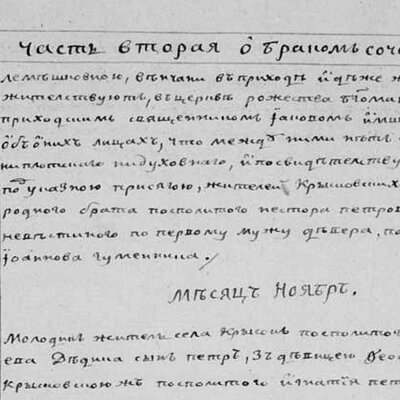 Часть вторая ѡ҆ бракомъ соче
лемѣшковною, вѣнчани въ приходѣ и҆дѣже ж
жителствуютъ, въ церквѣ рожества бг҃ома
приходскимъ священникомъ І҆аковомъ
ѡ҆бо ѡ҆нихъ лицахъ, что между ними нѣтъ
ниплотскаго нидуховнаго, и҆посвидѣтелству
под указною присягою, жителей Крысовских
родного брата посполитого нестора петров
невѣстиного по первому мужу дѣвера, по
І҆оаннова гуменника.
Мѣсяцъ Ноябрь.
Молодикъ жителъ села Крысокъ посполитог
ева Дѣдича сынъ петръ, зъ дѣвицею Ѳеос
Крысовскою жъ посполитого и҆гнатія пет